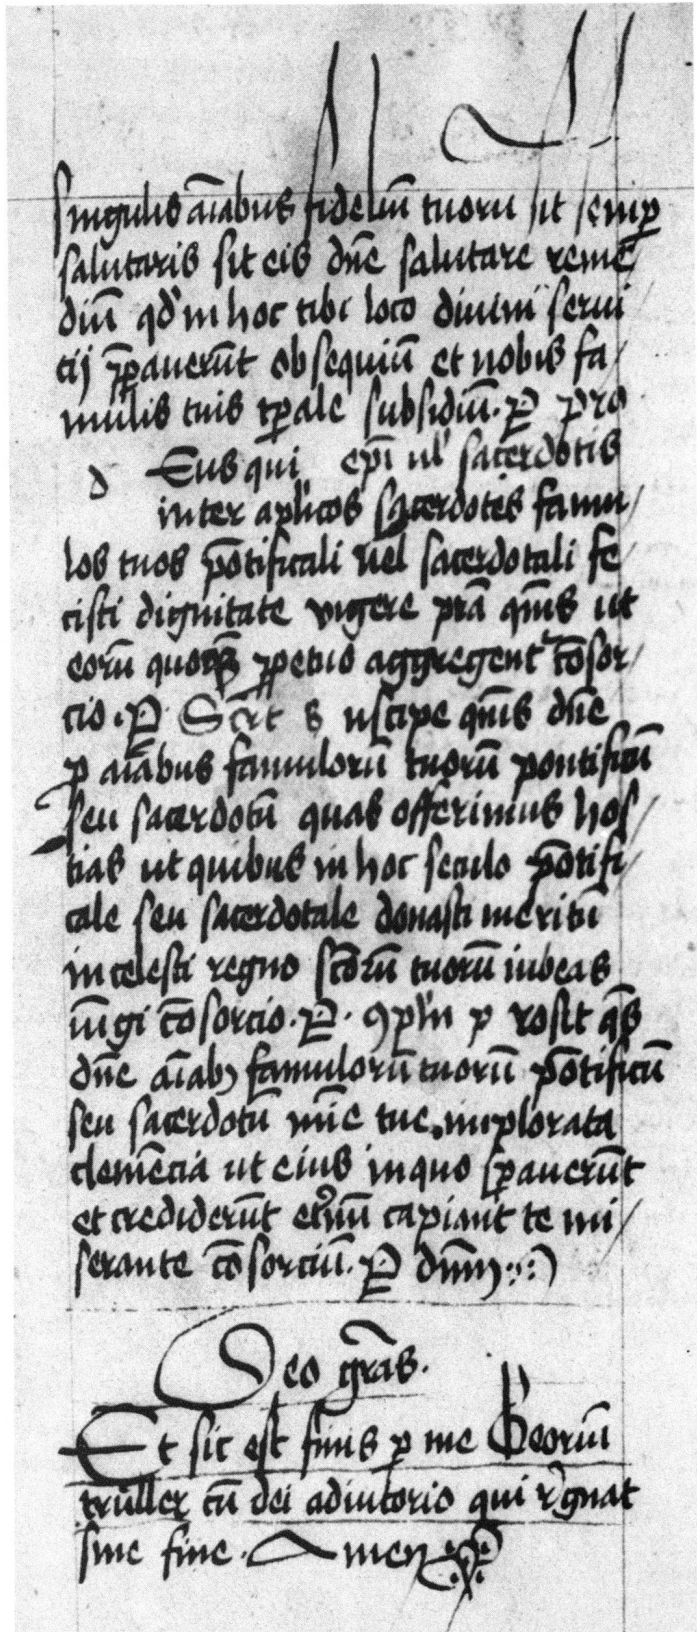 singulis aīabus fideliū tuorū sit semp̱
salutaris sit eis dn̄e salutare reme
diū qd' in hoc tibi loco divini servi
cij p̱pauerūt obsequiū et nobis fa
mulis tuis tp̱ale subsidiū. P̱ pro
d Eus qui ep̄i ul' sacerdotis
inter aplicos sacerdotes famu
los tuos pōtificali uel sacerdotali fe
cisti dignitate vigere pr̄a qm̄s ut
eorū quoq̄ p̱petuo aggregent' cōsor
cio. P̱. Secr̄t s uscipe qm̄s dn̄e
p̱ aīabus famulorū tuorū pontificū
seu sacerdotū quas offerimus hos
tias ut quibus in hoc seculo pōtifi
cale seu sacerdotale donasti meritū
in celesti regno sc̄orū tuorū iubeas
iūgi cōsorcio. P̱. ꝯpl'n p rosit qs̄
dn̄e aīabꝫ famulorū tuorū pōtificū
seu sacerdotū mīe tue implorata
clemēcia ut eius in quo sp̱auerūt
et crediderūt et'nū capiant te mi
serante cōsorciū. P̱ dn̄m
Deo gr̄as.
Et sic est finis p̱ me Georiū
trūller cū dei adiutorio qui r'gnat
sine fine. Amen